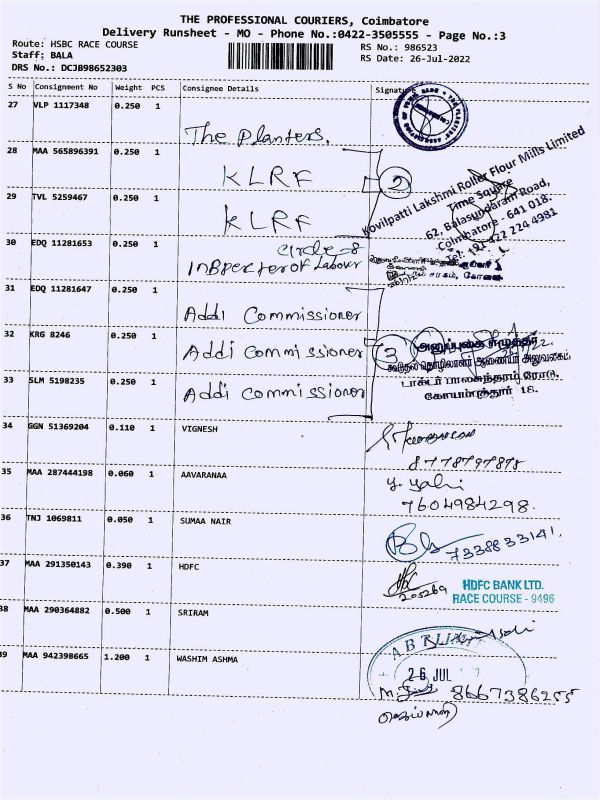 THE PROFESSIONAL COURIERS, Coimbatore
Delivery Runsheet - MO - Phone No.:0422-3505555 - Page No.:3
Route: HSBC RACE COURSE
Staff: BALA
DRS No.: DCJB98652303
RS No.: 986523
RS Date: 26-Jul-2022
S No Consignment No Weight PCS Consignee Details Signature
27 VLP 1117348 0.250 1 The Planters.
28 MAA 565896391 0.250 1 KLRF
2
Kovilpatti Lakshmi Roller Flour Mills Limited
Time Square
62, Balasundaram Road,
Coimbatore - 641 018.
Tel: +91 422 224 4981
29 TVL 5259467 0.250 1 KLRF
30 EDQ 11281653 0.250 1 Circle-8
Inspector of Labour
31 EDQ 11281647 0.250 1 Addi Commissioner
32 KRG 8246 0.250 1 Addi Commissioner
3
அனுப்புகை எழுத்தர்
கூடுதல் தொழிலாளர் ஆணையர் அலுவலகம்
டாக்டர் பாலசுந்தரம் ரோடு,
கோயம்புத்தூர் 18.
33 SLM 5198235 0.250 1 Addi Commissioner
34 GGN 51369204 0.110 1 VIGNESH
8778797878
35 MAA 287444198 0.060 1 AAVARANAA
7604984298.
36 TNJ 1069811 0.050 1 SUMAA NAIR
7338833141.
37 MAA 291350143 0.390 1 HDFC
205269
HDFC BANK LTD.
RACE COURSE - 9496
38 MAA 290364882 0.500 1 SRIRAM
39 MAA 942398665 1.200 1 WASHIM ASHMA
26 JUL
8667386255